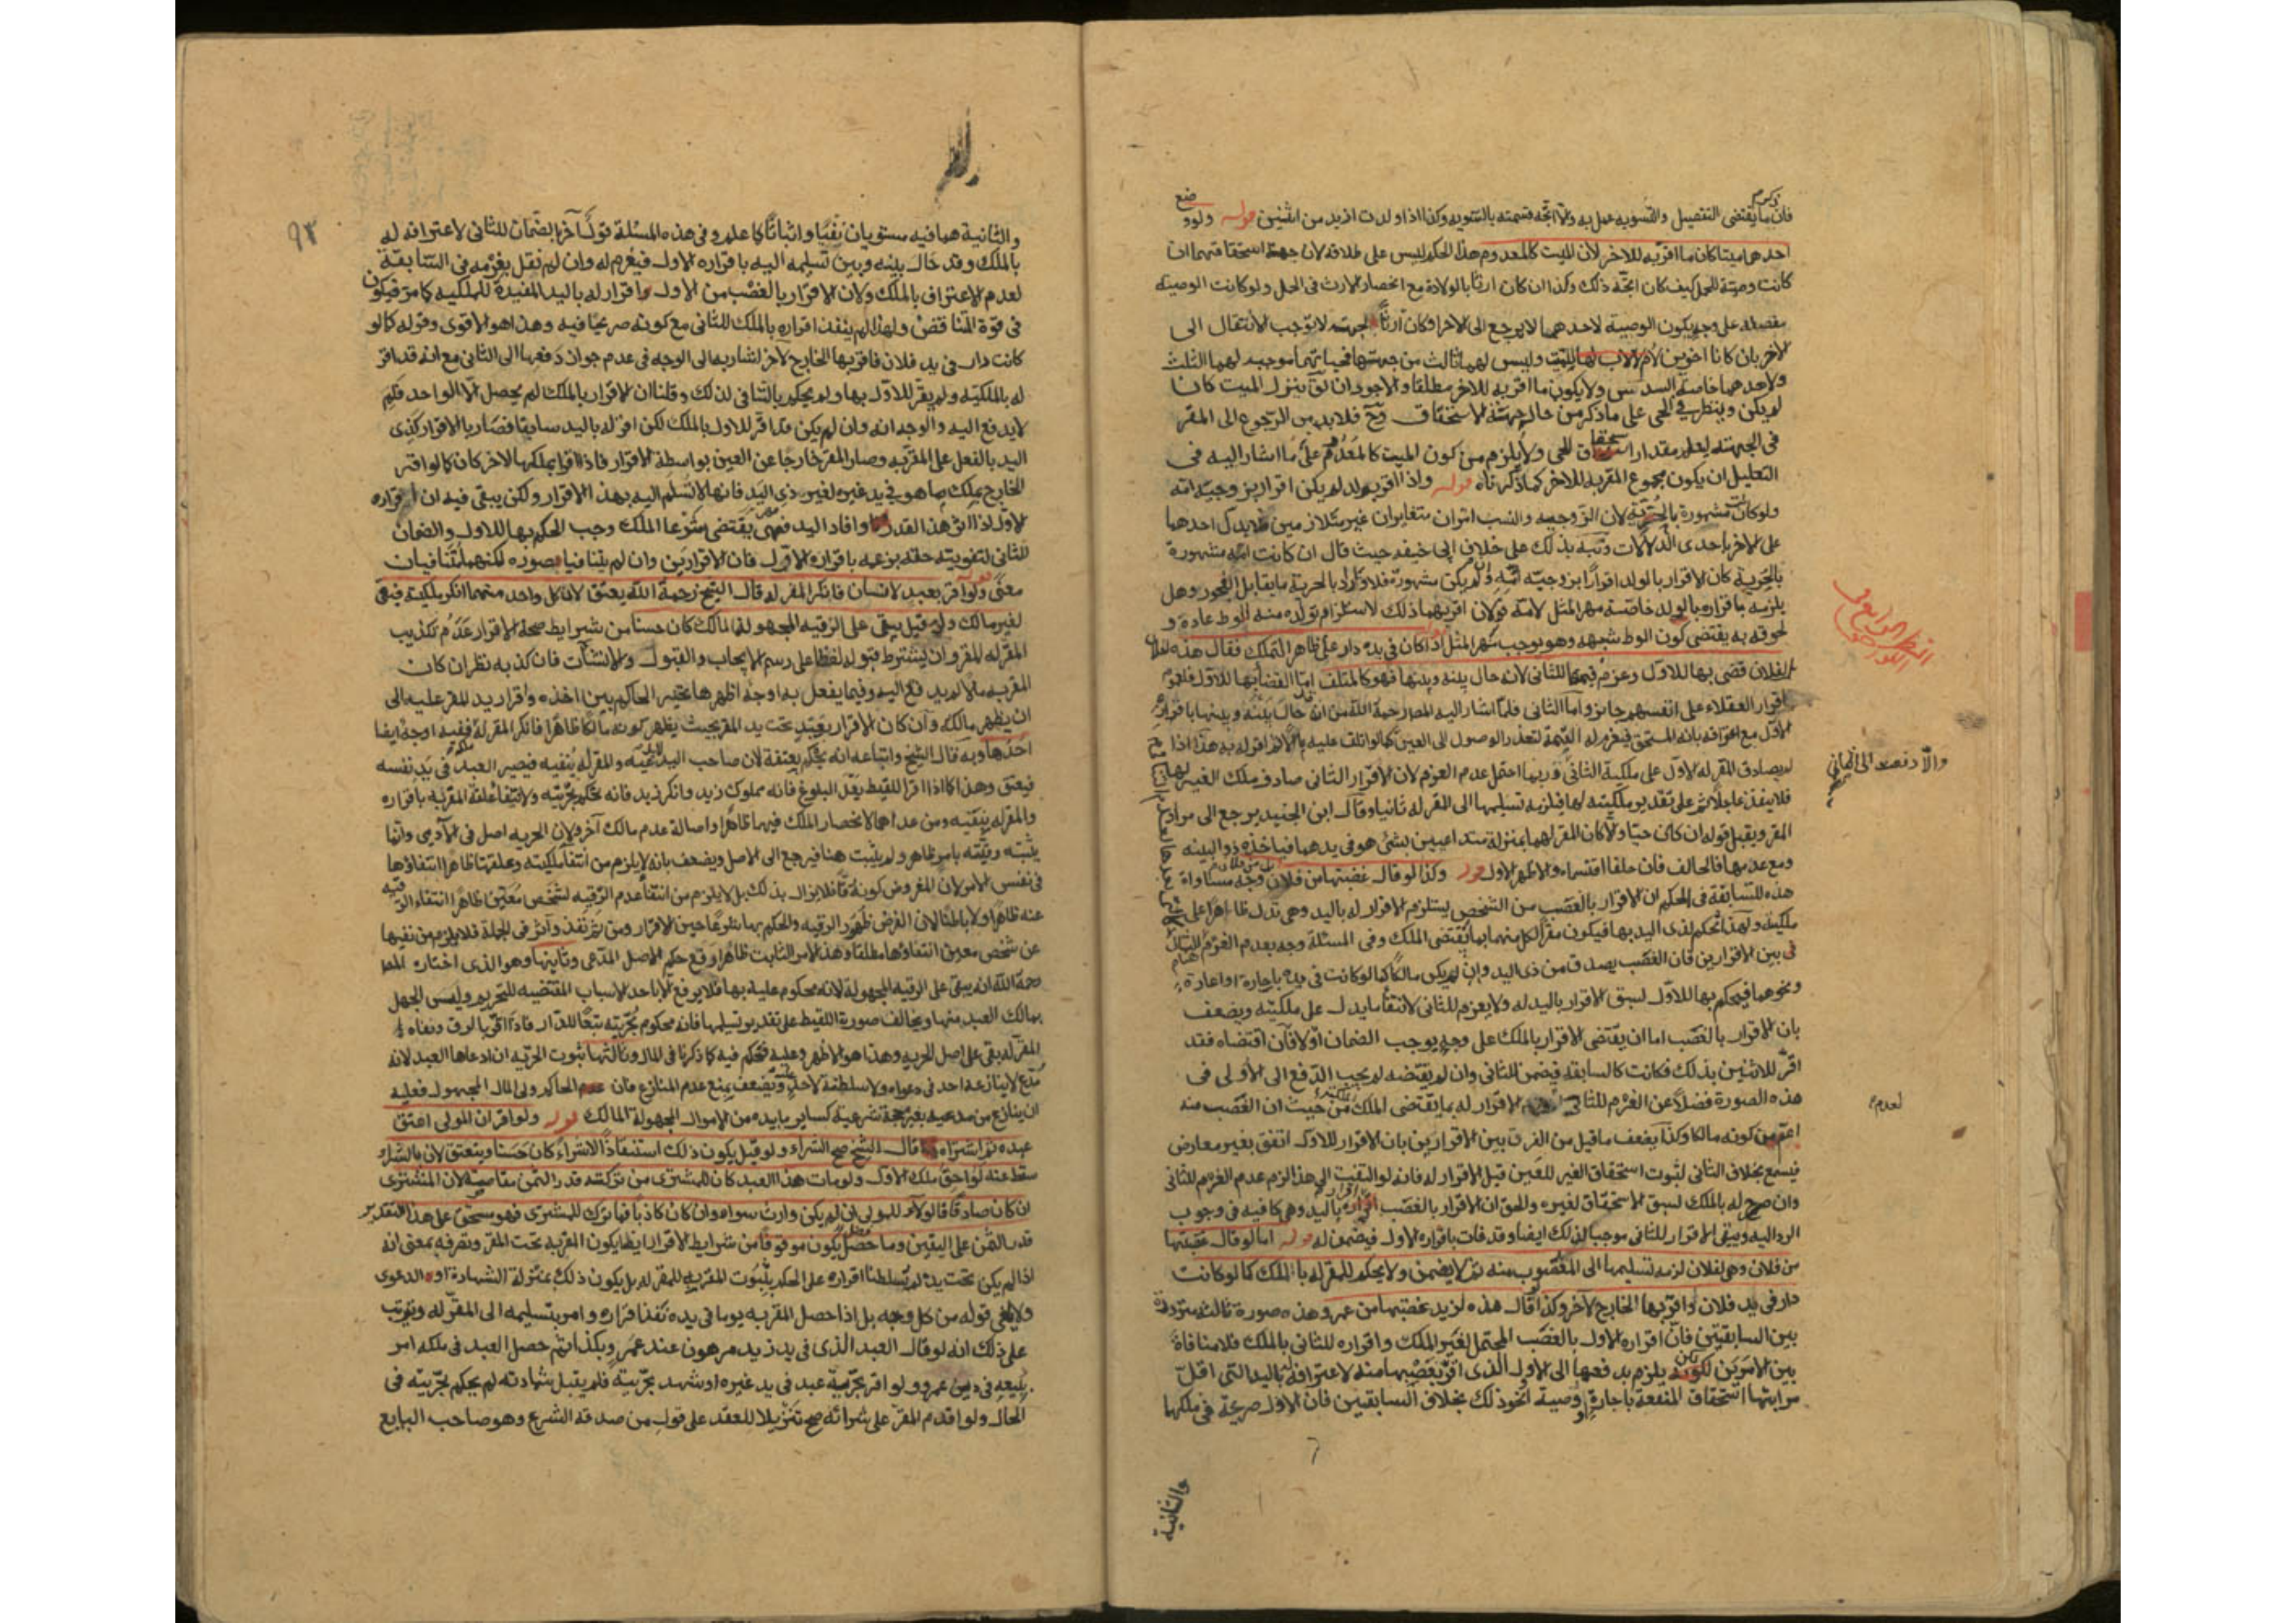 فان ما يقتضى التفصيل والتسويه عمل به والا اتجه قسمته بالسويه وكذا اذا ولدت ازيد من اثنين قوله ولو وضع
احدهما ميتا كان ما اقر به للاخر لان الميت كالمعدوم هذا الحكم ليس على طلاقه لان جهة استحقاقهما ان
كانت وصية للحمل كيف كان اتجه ذلك وكذا ان كان ارثا بالولادة مع انحصار الارث فى الحمل ولو كانت الوصية
مفصله على وجه يكون الوصية لاحدهما لا يرجع الى الاخر او كان ارثا لجهته لا توجب الانتقال الى
الاخر بان كانا اخوين لام للميت وليس لهما ثالث من جهتها فحياتهما موجبه لهما الثلث
ولاحدهما خاصة السدس ولا يكون ما اقر به للاخر مطلقا والاجود ان ينزل الميت كان
لم يكن وينظر فى الحى على ما ذكر من حال جهة الاستحقاق وح فلا بد من الرجوع الى المقر
فى الجهة ليعلم مقدار استحقاق الحى ولا يلزم من كون الميت كالمعدوم على ما اشار اليه فى
التعليل ان يكون مجموع المقر به للاخر كما ذكرناه قوله واذا اقر بولد لم يكن اقرارا بزوجية امه
ولو كانت مشهورة بالحرية لان الزوجية والنسب امران متغايران غير متلازمين فلا يدل احدهما
على الاخر باحدى الدلالات ونبه بذلك على خلاف ابى حنيفه حيث قال ان كانت امه مشهورة
بالحرية كان الاقرار بالولد اقرارا بزوجية امه وان لم يكن مشهورة فلا والمراد بالحرية ما يقابل الفجور وهل
يلزمه باقراره بالولد خاصة مهر المثل لامه قولان اقربهما ذلك لاستلزام تولده منه الوط عادة و
لحوقه به يقتضى كون الوط شبهه وهو يوجب مهر المثل اذا كان فى يده دار على ظاهر التملك فقال هذه لفلان
بل لفلان قضى بها للاول وغرم قيمتها للثانى لانه حال بينه وبينها فهو كالمتلف اما القضاء بها للاول فلعموم
اقرار العقلاء على انفسهم جايز واما الثانى فلما اشار اليه المصر رحمه الله من ان حال بينه وبينها باقراره
الاول مع اعترافه بانه المستحق فيغرم له القيمة لتعذر الوصول الى العين كما لو اتلف عليه مالا ثم اقر له به هذا اذا
لم يصادق المقر له الاول على ملكية الثانى وربما احتمل عدم الغرم لان الاقرار الثانى صادف ملك الغير لها
فلا ينفذ عاجلا ثم على تقدير ملكيته لها فيلزمه تسليمها الى المقر له ثانيا وقال ابن الجنيد يرجع الى مراد
المقر ويقبل قوله ان كان حيا ولا كان المقر لهما بمنزلة متداعيين بشئ هو فى يدهما فياخذه ذو البينه
ومع عدمها فالحالف فان حلفا اقتسماه والاظهر الاول قوله وكذا لو قال غصبتها من فلان بل من فلان وجه مساواة
هذه للسابقة فى الحكم ان الاقرار بالغصب من الشخص يستلزم الاقرار له باليد وهى تدل ظاهرا على
ملكيته ولهذا تحكم لذى اليد بها فيكون مقرا لكل منهما بما يقتضى الملك وفى المسئلة وجه بعدم الغرم للثانى
فى بين الاقرارين فان الغصب يصدق من ذى اليد وان لم يكن مالكا كما لو كانت فى يده باجارة او اعارة
ونحوهما فيحكم بها للاول لسبق الاقرار باليد له ولا يغرم للثانى لانتفاء ما يدل على ملكيته ويضعف
بان الاقرار بالغصب اما ان يقتضى الاقرار بالملك على وجه يوجب الضمان اولا فان اقتضاه فقد
اقر للاثنين بذلك فكانت كالسابقة فيضمن للثانى وان لم يقتضه لم يجب الدفع الى الاولى فى
هذه الصورة فضلا عن الغرم للثانى الاقرار له بما يقتضى الملك من حيث ان الغصب منه
اعم من كونه مالكا وكذا يضعف ما قيل من الفرق بين الاقرارين بان الاقرار للاول اتفق بغير معارض
فيسمع بخلاف الثانى لثبوت استحقاق الغير للعين قبل الاقرار له فانه لو التفت الى هذا لزم عدم الغرم للثانى
وان صرح له بالملك لسبق الاستحقاق لغيره والحق ان الاقرار بالغصب اقرار باليد وهى كافية فى وجوب
الرد اليه ويبقى الاقرار للثانى موجبا لذلك ايضا وقد فات باقراره الاول فيضمن له قوله اما لو قال غصبتها
من فلان وهى لفلان لزمه تسليمها الى المغصوب منه ثم لا يضمن ولا يحكم للمقر له بالملك كما لو كانت
دار فى يد فلان واقر بها الخارج لاخر وكذا لو قال هذه لزيد غصبتها من عمرو هذه صورة ثالثه مترددة
بين السابقتين فان اقراره الاول بالغصب المحتمل لغير الملك واقراره للثانى بالملك فلا منافاة
بين الامرين لكن يلزم بدفعها الى الاول الذى اقر بغصبها منه لاعترافه له باليد التى اقل
مراتبها استحقاق المنفعة باجارة او وصية او نحو ذلك بخلاف السابقين فان الاول صريحة فى ملكهما
والثانية
والا دفعت الى الثانى
لعدم
٩٣
والثانية هما فيه مستويان نفيا واثباتا كما علم وفى هذه المسئلة قول آخر بالضمان للثانى لاعترافه له
بالملك وقد حال بينه وبين تسليمه اليه باقراره الاول فيغرم له وان لم نقل بغرمه فى السابقة
لعدم الاعتراف بالملك ولان الاقرار بالغصب من الاول اقرار له باليد المفيدة للملكيه كما مر فيكون
فى قوة التناقض ولهذا لم ينفذ اقراره بالملك للثانى مع كونه صريحا فيه وهذا هو الاقوى وقوله كما لو
كانت دار فى يد فلان فاقر بها الخارج لاخر اشار به الى الوجه فى عدم جواز دفعها الى الثانى مع انه قد اقر
له بالملكية ولم يقر للاول بها ولم يحكم بالثانى لذلك وقلنا ان الاقرار بالملك لم يحصل الا لواحد فلم
لا يدفع اليه والوجه انه وان لم يكن قد اقر للاول بالملك لكن اقر له باليد سابقا فصار بالاقرار كذى
اليد بالفعل على المقر به وصار المقر خارجا عن العين بواسطة الاقرار فاذا اقر بملكها لاخر كان كما لو اقر
الخارج بملك ما هو فى يد غيره لغير ذى اليد فانها لا تسلم اليه بهذا الاقرار ولكن يبقى فيه ان اقراره
الاول اذا اثر هذا القدر وافاد اليد فهى تقتضى شرعا الملك وجب الحكم بها للاول والضمان
للثانى لتفويته حقه بزعمه باقراره الاول فان الاقرارين وان لم يتنافيا بصوره لكنهما متنافيان
معنى قوله ولو اقر بعبد لانسان فانكر المقر له قال الشيخ رحمه الله يعتق لان كل واحد منهما انكر ملكيته فبقى
لغير مالك ولو قيل يبقى على الرقيه المجهولة المالك كان حسنا من شرايط صحة الاقرار عدم تكذيب
المقر له للمقر وان لم يشترط قبوله لفظا على رسم الايجاب والقبول والانشآت فان كذبه نظر ان كان
المقر به مالا لم يدفع اليه وفيما يفعل به اوجه اظهرها تخيير الحاكم بين اخذه واقرار يد المقر عليه الى
ان يظهر مالكه وان كان الاقرار بعبد تحت يد المقر بحيث يظهر كونه مالكا ظاهرا فانكر المقر له ففيه اوجه ايضا
احدها وبه قال الشيخ واتباعه انه يحكم بعتقه لان صاحب اليد والمقر له ينفيه فيصير العبد فى يد نفسه
فيعتق وهذا كما اذا اقر اللقيط بعد البلوغ فانه مملوك زيد وانكر زيد فانه يحكم بحريته ولانتفاء علقة المقر به باقراره
والمقر له بنفيه ومن عداهما لانحصار الملك فيهما ظاهرا واصالة عدم مالك آخر ولان الحريه اصل فى الادمى وانما
فى نفس الامر لان المفروض كونه رقا فلا يزال بذلك بل لا يلزم من انتفاء عدم الرقيه لشخص معين ظاهرا انتفاء الرقية
عنه ظاهرا ولا باطنا لان الفرض ظهور الرقيه والحكم بها شرعا حين الاقرار ومن ثم نفذ واثر فى الجملة فلا يلزم من نفيها
عن شخص معين انتفاؤها مطلقا وهذا الامر الثابت ظاهرا رفع حكم الاصل المدعى وثانيها وهو الذى اختاره المصر
رحمه الله انه يبقى على الرقية المجهولة لانه محكوم عليه بها فلا يرفع الا باحد الاسباب المقتضيه للتحرير وليس الجهل
بمالك العبد منها ويخالف صورة اللقيط على تقدير تسليمها فانه محكوم بحريته تبعا للدار فاذا اقر بالرق ونفاه
المقر له بقى على اصل الحريه وهذا هو الاظهر وعليه فحكم فيه كما ذكرنا فى المال وثالثها ثبوت الحرية ان ادعاها العبد لانه
مدع لا ينازعه احد فى دعواه ولا سلطنة لاحد عليه ويضعف بمنع عدم المنازع فان الحاكم ولى المال المجهول فعليه
ان ينازع من يدعيه بغير حجة شرعية كساير ما بيده من الاموال المجهولة المالك قوله ولو اقر ان المولى اعتق
عبده ثم اشتراه قال الشيخ صح الشراء ولو قيل يكون ذلك استنقاذا لا شراء كان حسنا وينعتق لان بالشراء
سقط عنه لواحق ملك الاول ولو مات هذا العبد كان للمشترى من تركته قدر الثمن مقاصة لان المشترى
ان كان صادقا فالولاء للمولى ان لم يكن وارث سواه وان كان كاذبا فما ترك للمشترى فهو مستحق على هذا التقدير
قدر الثمن على اليقين وما فضل يكون موقوفا من شرايط الاقرار ايضا يكون المقر به تحت المقر وتصرفه بمعنى انه
اذا لم يكن تحت يده لم تسلطنا اقراره على الحكم بثبوت المقر به للمقر له بل يكون ذلك بمنزلة الشهادة او الدعوى
ولا يلغى قوله من كل وجه بل اذا حصل المقر به يوما فى يده نفذ اقراره وامر بتسليمه الى المقر له ويترتب
على ذلك انه لو قال العبد الذى فى يد زيد مرهون عند عمرو بكذا ثم حصل العبد فى ملكه امر
ببيعه فى دين عمرو ولو اقر بحرية عبد فى يد غيره او شهد بحريته فلم يقبل شهادته لم يحكم بحريته فى
الحال ولو اقدم المقر على شرائه صح تنزيلا للعقد على قول من صدقه الشرع وهو صاحب البايع